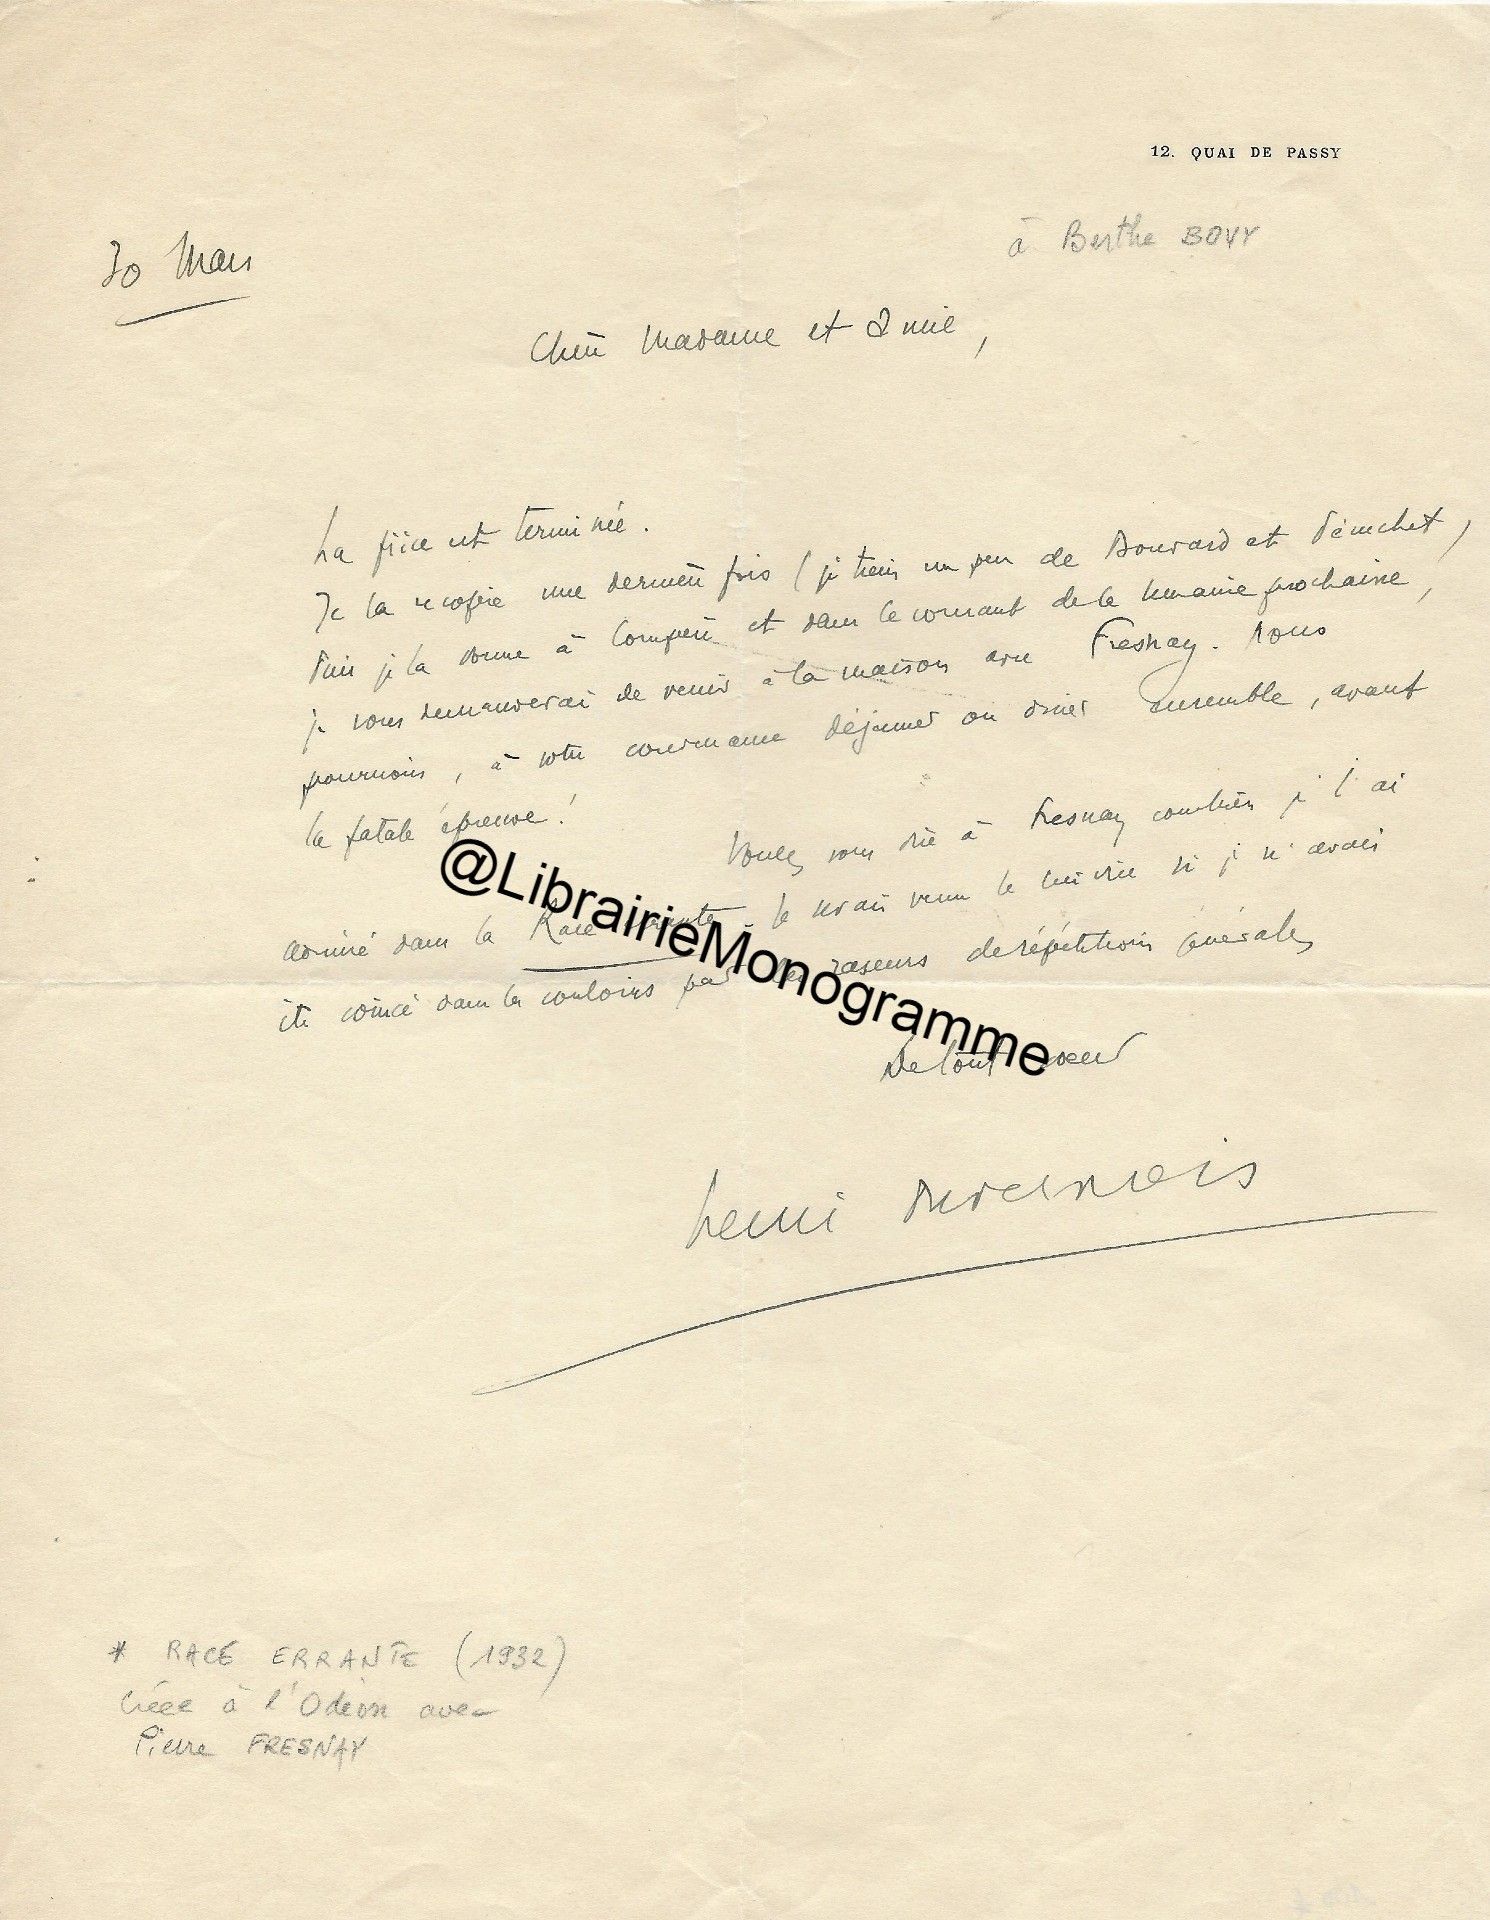 12. QUAI DE PASSY
à Berthe BOVY
30 Mars
Chère Madame et Amie,
La pièce est terminée.
Je la recopie une dernière fois (je tiens un peu de Bouvard et Pécuchet)
Puis je la donne à Compère et dans le courant de la semaine prochaine,
je vous demanderai de venir à la maison avec Fresnay. Nous
pourrions, à votre convenance déjeuner ou dîner ensemble, avant
la fatale épreuve!
Voulez vous dire à Fresnay combien je l'ai
admiré dans la Race errante. Je serais venu le lui dire si je n'avais
été coincé dans les couloirs par des raseurs de répétitions générales
De tout coeur
Henri Duvernois
@LibrairieMonogramme
* RACE ERRANTE (1932)
Créée à l'Odéon avec
Pierre FRESNAY